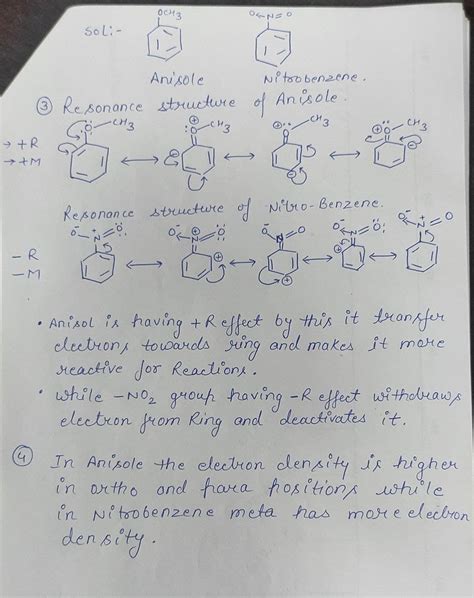 Sol:-
OCH3
O-N=O
Anisole
Nitrobenzene.
③ Resonance structure of Anisole.
→ +R
→ +M
CH3
CH3
CH3
CH3
Resonance structure of Nitro-Benzene.
- R
- M
• Anisol is having +R effect by this it transfer
electrons towards ring and makes it more
reactive for Reactions.
• while -NO2 group having -R effect withdraws
electron from Ring and deactivates it.
④ In Anisole the electron density is higher
in ortho and para positions while
in Nitrobenzene meta has more electron
density.